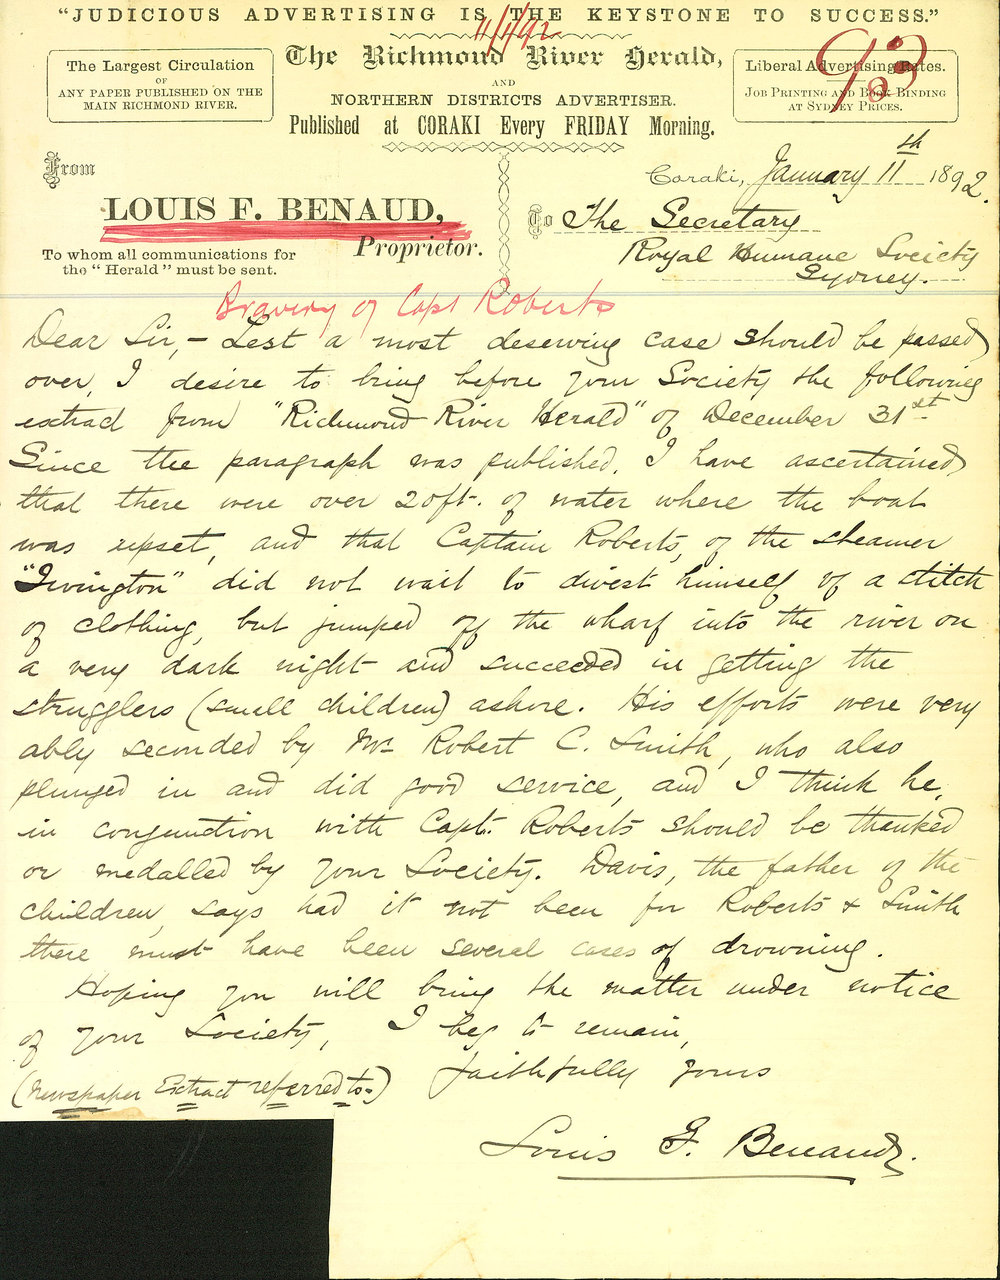 "JUDICIOUS ADVERTISING IS THE KEYSTONE TO SUCCESS."
11/1/92
The Largest Circulation
OF
ANY PAPER PUBLISHED ON THE
MAIN RICHMOND RIVER.
The Richmond River Herald,
AND
NORTHERN DISTRICTS ADVERTISER.
Published at CORAKI Every FRIDAY Morning.
Liberal Advertising Rates.
JOB PRINTING AND BOOK BINDING
AT SYDNEY PRICES.
From
LOUIS F. BENAUD,
Proprietor.
To whom all communications for
the "Herald" must be sent.
Coraki, January 11th 1892.
To The Secretary
Royal Humane Society
Sydney.
Bravery of Capt Roberts
Dear Sir,- Lest a most deserving case should be passed
over, I desire to bring before your Society the following
extract from "Richmond River Herald" of December 31st
Since the paragraph was published, I have ascertained
that there were over 20ft. of water where the boat
was upset, and that Captain Roberts, of the steamer
"Irvington" did not wait to divest himself of a stitch
of clothing, but jumped off the wharf into the river on
a very dark night and succeeded in getting the
strugglers (small children) ashore. His efforts were very
ably seconded by Mr Robert C. Smith, who also
plunged in and did good service, and I think he,
in conjunction with Capt. Roberts should be thanked
or medalled by your Society. Davis, the father of the
children, says had it not been for Roberts & Smith
there must have been several cases of drowning.
Hoping you will bring the matter under notice
of your Society, I beg to remain,
Faithfully yours
(Newspaper Extract referred to.)
Louis F. Benaud.